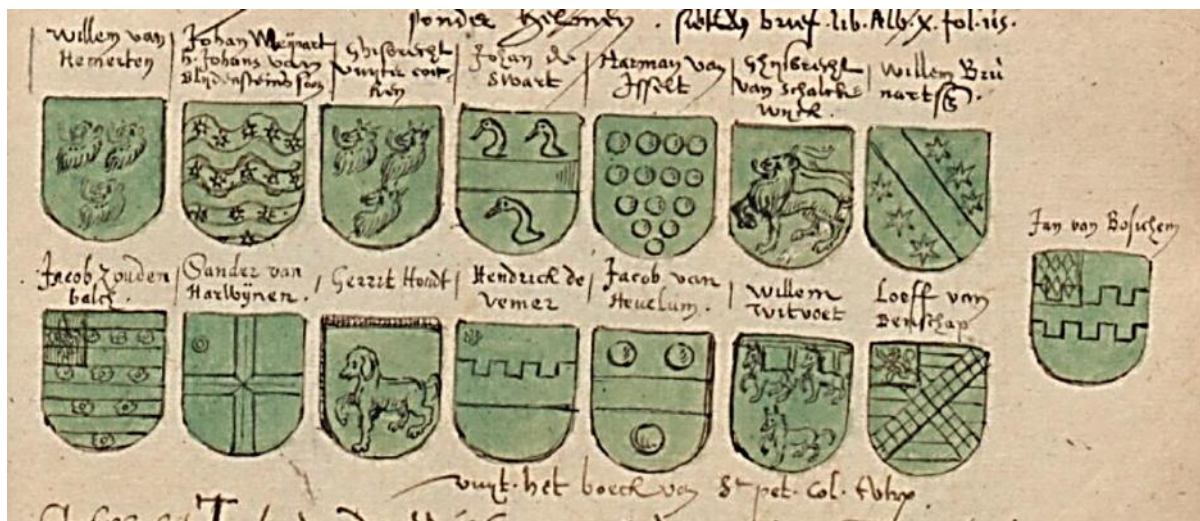 sonder helmen. siet den brief. lib. Alb. X. fol. iis.
Willem van
Hemerten
Johan Meijnart
h. Johans van
Blijdensteins soen
Ghisbrecht
Johan de
Swart
Harman van
Isselt
Ghijsbrecht
van Schalck
wijck.
Willem Brü
nartss.
Jan van Boschem
Jacob Zouden
balch.
Sander van
Harwijnen.
Gerrit Hondt
Hendrick de
Vemer
Jacob van
Hevelum.
Willem
Witvoet
Loeff van
Benschap
vuyt. het boeck van St pet. Col.